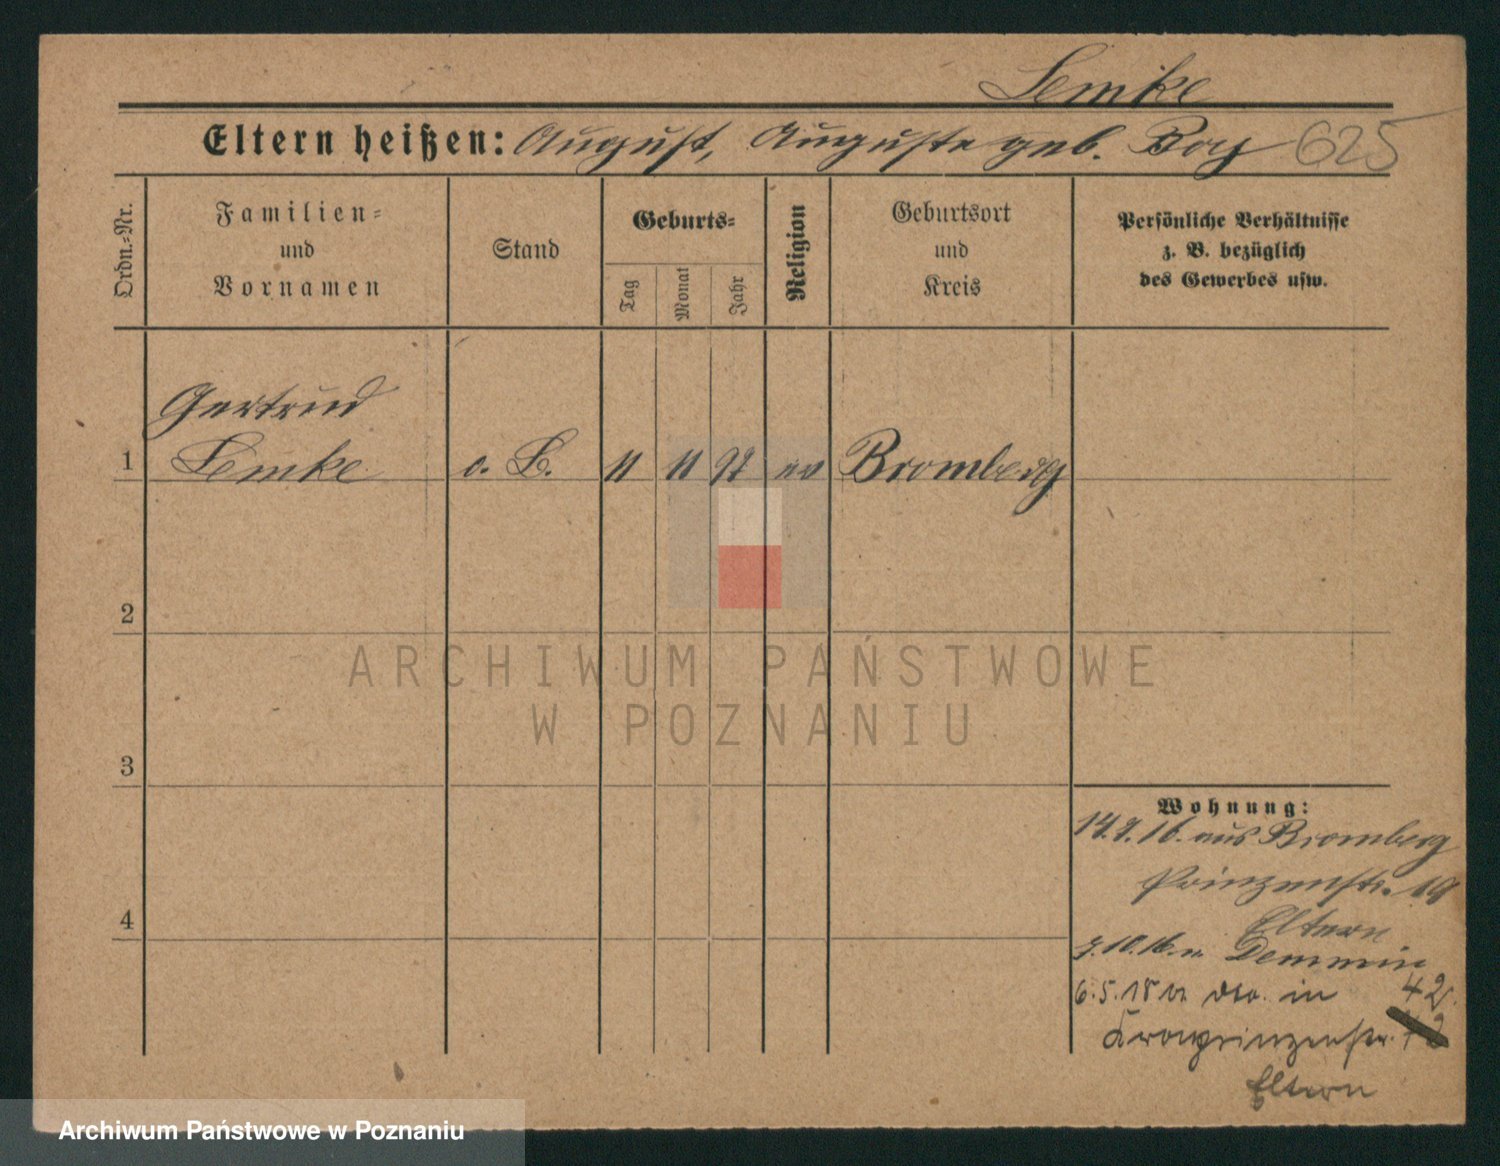 Lemke
Eltern heißen: August, Auguste geb. Boy 625
Ordn.=Nr.
Familien=
und
Vornamen
Stand
Geburts=
Tag
Monat
Jahr
Religion
Geburtsort
und
Kreis
Persönliche Verhältnisse
z. B. bezüglich
des Gewerbes usw.
Gertrud
1 Lemke o. B. 11 11 92 ev Bromberg
2
3
4
ARCHIWUM PAŃSTWOWE
W POZNANIU
Wohnung:
14.9.16. aus Bromberg
Prinzenstr. 19
Eltern
7.10.16. n. Demmin
6.5.18 v. dto. in 42.
Kronprinzenstr.
Eltern
Archiwum Państwowe w Poznaniu